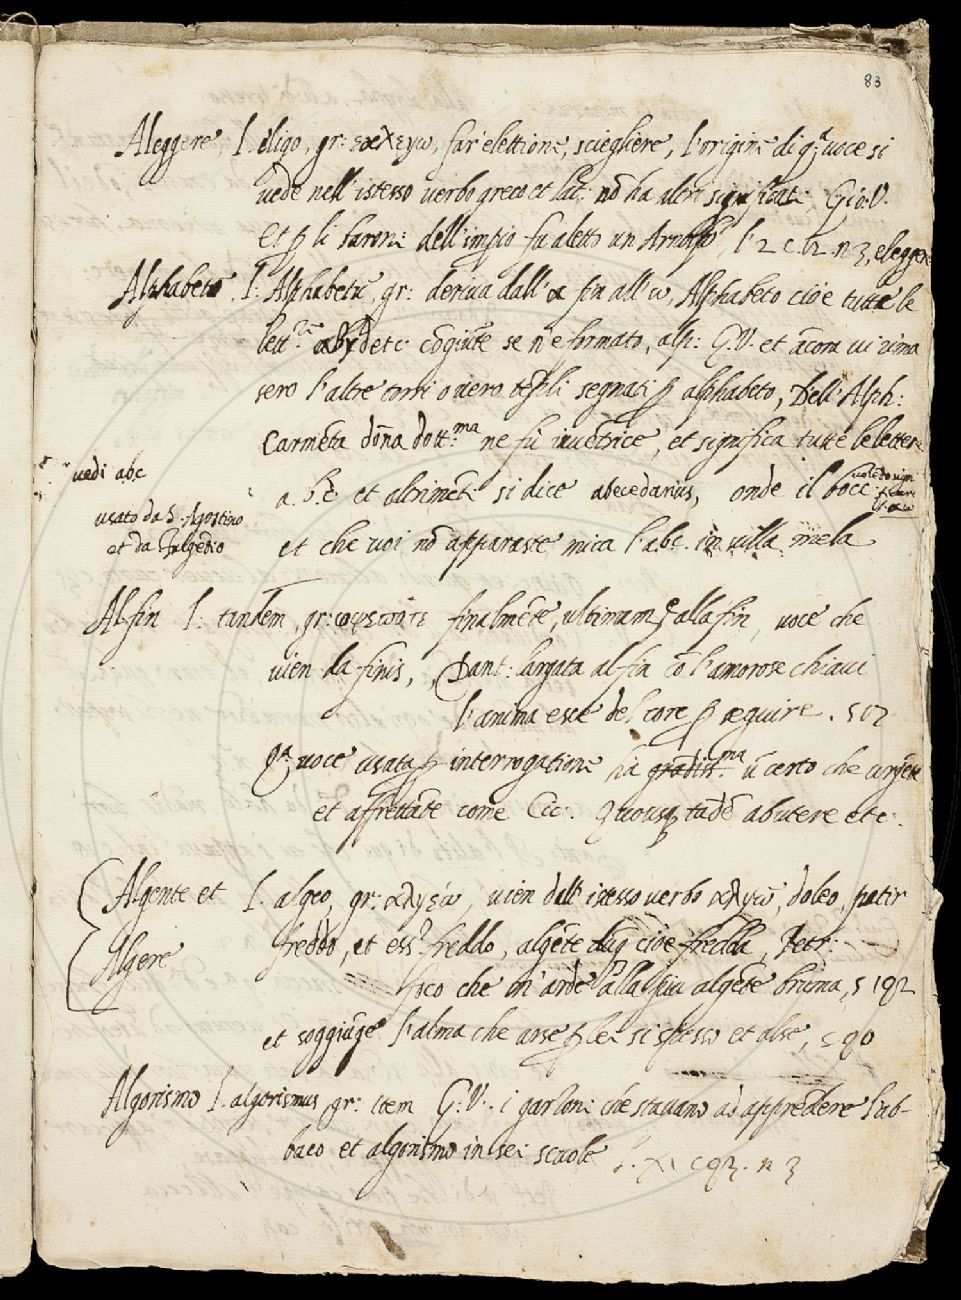 83
Aleggere, l. eligo, gr: εκλεγω, far elettione, sciegliere, l'origine di q.ª uoce si
uede nell istesso uerbo greco et lat: nõ ha altri significati: Gio. V.
et ꝑ li baroni dell'impio fu aletto un Arnolfo l 2 c. 2 n 3, eleggere
Alphabeto, l. Alphabetũ, gr: deriua dall' α fin all' ω, Alphabeto cioe tutte le
lett.re αβγδ etc cõgiũte se n'e formato, alp: G. V. et ãcora ui rima
sero l'altre torri o uero tẽpli segnati ꝑ alphabeto, Dell'Alph:
Carmẽta dõna dott.ma ne fù inuẽtrice, et significa tutte le lettere
uedi abc
a. b. c. et altrimẽti si dice abecedarius, onde il bocc:
usato da S. Agostino
et da Fulgẽtio
et che uoi nõ apparaste mica l'abc. in sulla mela
Alfin l: tandem, gr: finalmẽte, ultimam.e alla fin, uoce che
uien da finis, Dant: largata al fin cõ l'amorose chiaui
l'anima esce del core ꝑ seguire. s 17
q.ª uoce usata ꝑ interrogatione hà grãdiss.ma ũ certo che urgẽte
et affrettãte come Cic: Quousq; tãdẽ abutere etc.
Algente et l. algeo, gr: αλγεω, uien dall istesso uerbo αλγω, doleo, patir
Algere
freddo, et ess.r freddo, algẽte duq; cioe fredda, Petr:
foco che m'arde alla piu algẽte bruma, s 192
et soggiũge l'alma che arse ꝑ lei si spesso et alse, s 90
Algorismo l. algorismus, gr: item G: V. i garzoni che stauano ad apprẽdere l'ab-
baco et algorismo in sei scuole l. XI c 93. n 3